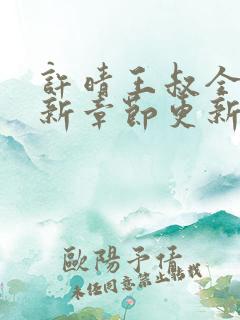 許晴王叔全
新章節更新
歐陽予倩
未經同意禁止轉載